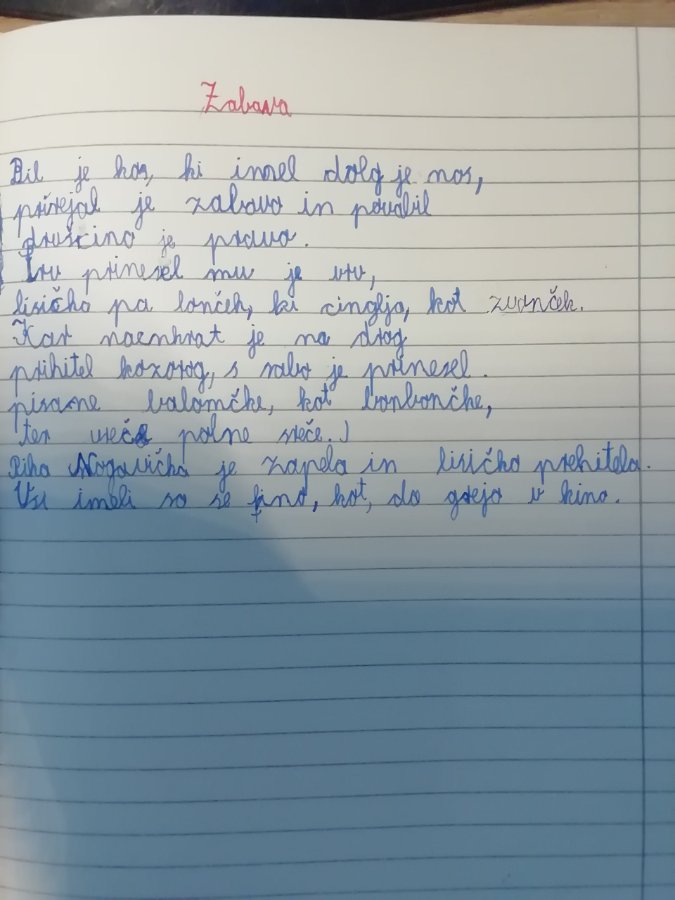 Zabava
Bil je kos, ki imel dolg je nos,
prirejal je zabavo in povabil
druščino je pravo.
Lev prinesel mu je
lisička pa lonček, ki cinglja, kot zvonček.
Kar naenkrat je na drog
prihitel kozorog, s sabo je prinesel
pisane balončke, kot bonbončke,
ter vreče polne sreče.
Pika Nogavička je zapela in lisička prehitela.
Vsi imeli so se fino, kot, da grejo v kino.